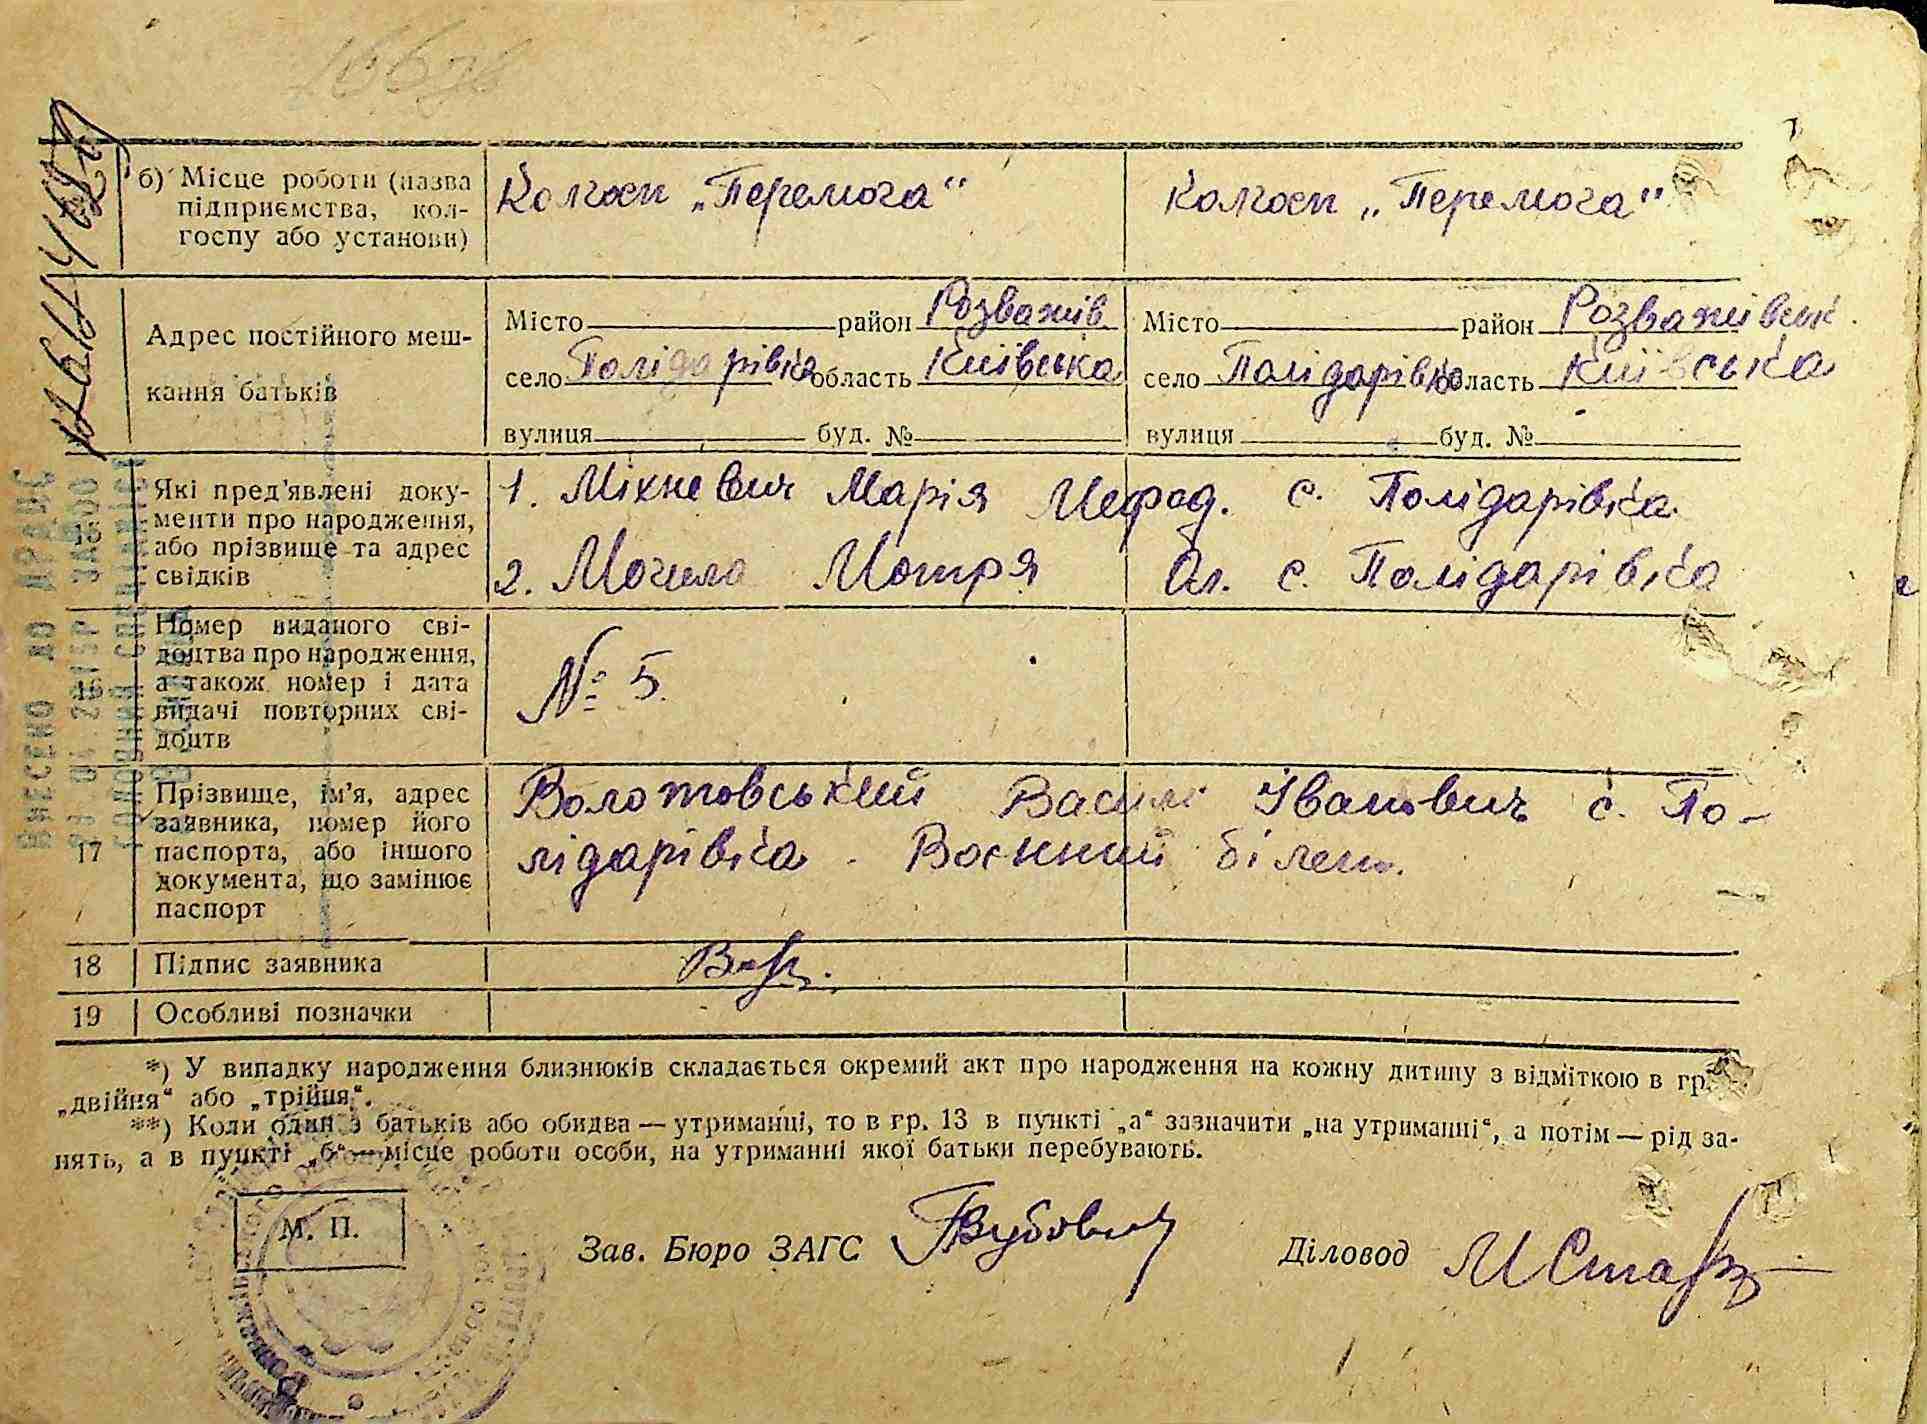 б) Місце роботи (назва підприємства, колгоспу або установи)
Колгосп „Перемога“
Колгосп „Перемога“
Адрес постійного мешкання батьків
Місто район Розважів
село Полідарівка область Київська
вулиця буд. №
Місто район Розважівськ
село Полідарівка область Київська
вулиця буд. №
15
Які пред'явлені доку-
менти про народження,
або прізвище та адрес
свідків
1. Міхневич Марія Мефод. с. Полідарівка
2. Могила Мотря Ол. с. Полідарівка
16
Номер виданого сві-
доцтва про народження,
а також номер і дата
видачі повторних сві-
доцтв
№ 5.
17
Прізвище, ім'я, адрес
заявника, номер його
паспорта, або іншого
документа, що замінює
паспорт
Волотовський Василь Іванович с. По-
лідарівка. Воєнний білет.
18 Підпис заявника
19 Особливі позначки
*) У випадку народження близнюків складається окремий акт про народження на кожну дитину з відміткою в гр.
„двійня“ або „трійня“.
**) Коли один з батьків або обидва — утриманці, то в гр. 13 в пункті „а“ зазначити „на утриманні“, а потім — рід за-
нять, а в пункті „б“ — місце роботи особи, на утриманні якої батьки перебувають.
М. П.
Зав. Бюро ЗАГС
Діловод
ВНЕСЕНО ДО ДРАЦС